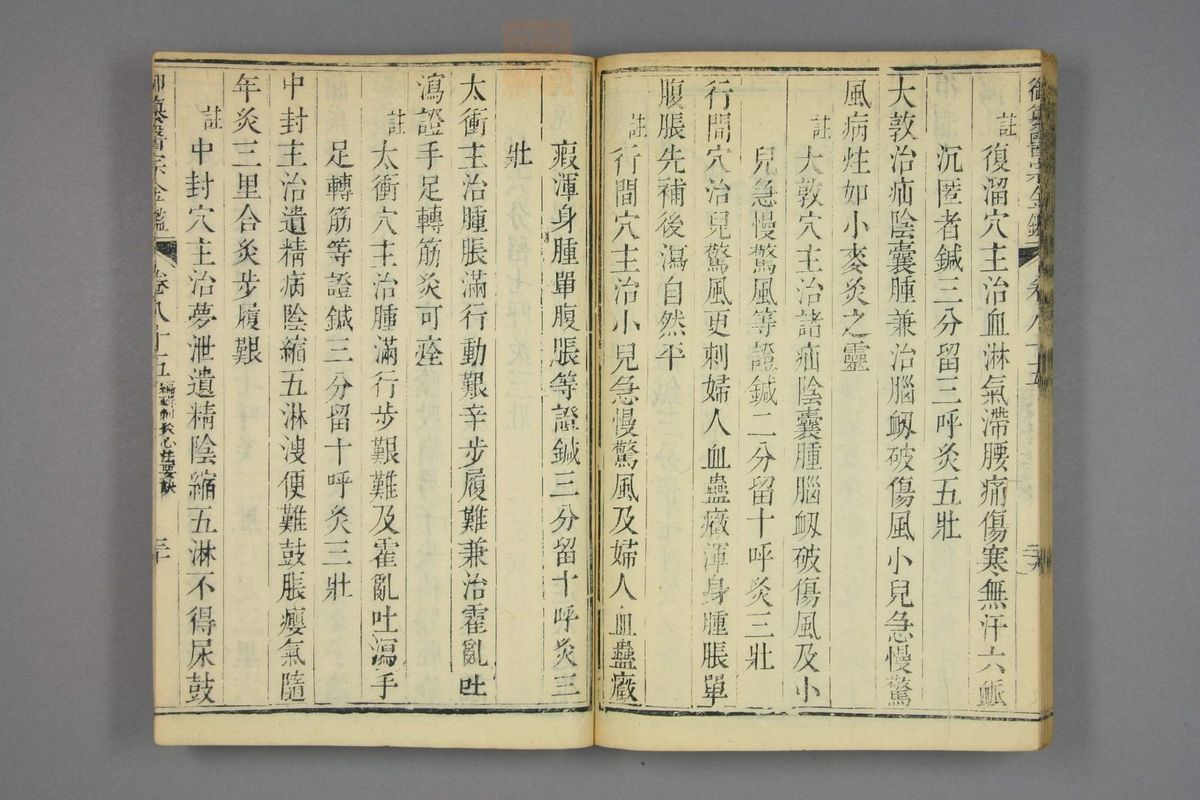 御纂醫宗金鑑 卷八十五
註復溜穴主治血淋氣滯腰痛傷寒無汗六脈
沉匿者鍼三分留三呼灸五壯
大敦治疝陰囊腫兼治腦衂破傷風小兒急慢驚
風病炷如小麥灸之靈
註大敦穴主治諸疝陰囊腫腦衂破傷風及小
兒急慢驚風等證鍼二分留十呼灸三壯
行間穴治兒驚風更刺婦人血蠱癥渾身腫脹單
腹脹先補後瀉自然平
註行間穴主治小兒急慢驚風及婦人血蠱癥
瘕渾身腫單腹脹等證鍼三分留十呼灸三
壯
太衝主治腫脹滿行動艱辛步履難兼治霍亂吐
瀉證手足轉筋灸可痊
註太衝穴主治腫滿行步艱難及霍亂吐瀉手
足轉筋等證鍼三分留十呼灸三壯
中封主治遺精病陰縮五淋溲便難鼓脹癭氣隨
年灸三里合灸步履艱
註中封穴主治夢泄遺精陰縮五淋不得尿鼓
御纂醫宗金鑑 卷八十五 編輯刺灸心法要訣 三十